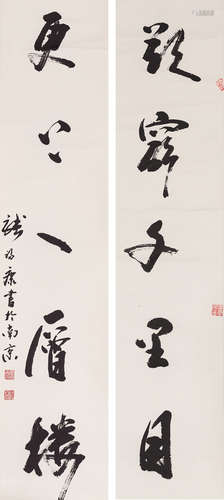 欲窮千里目
更上一層樓
康書於南京